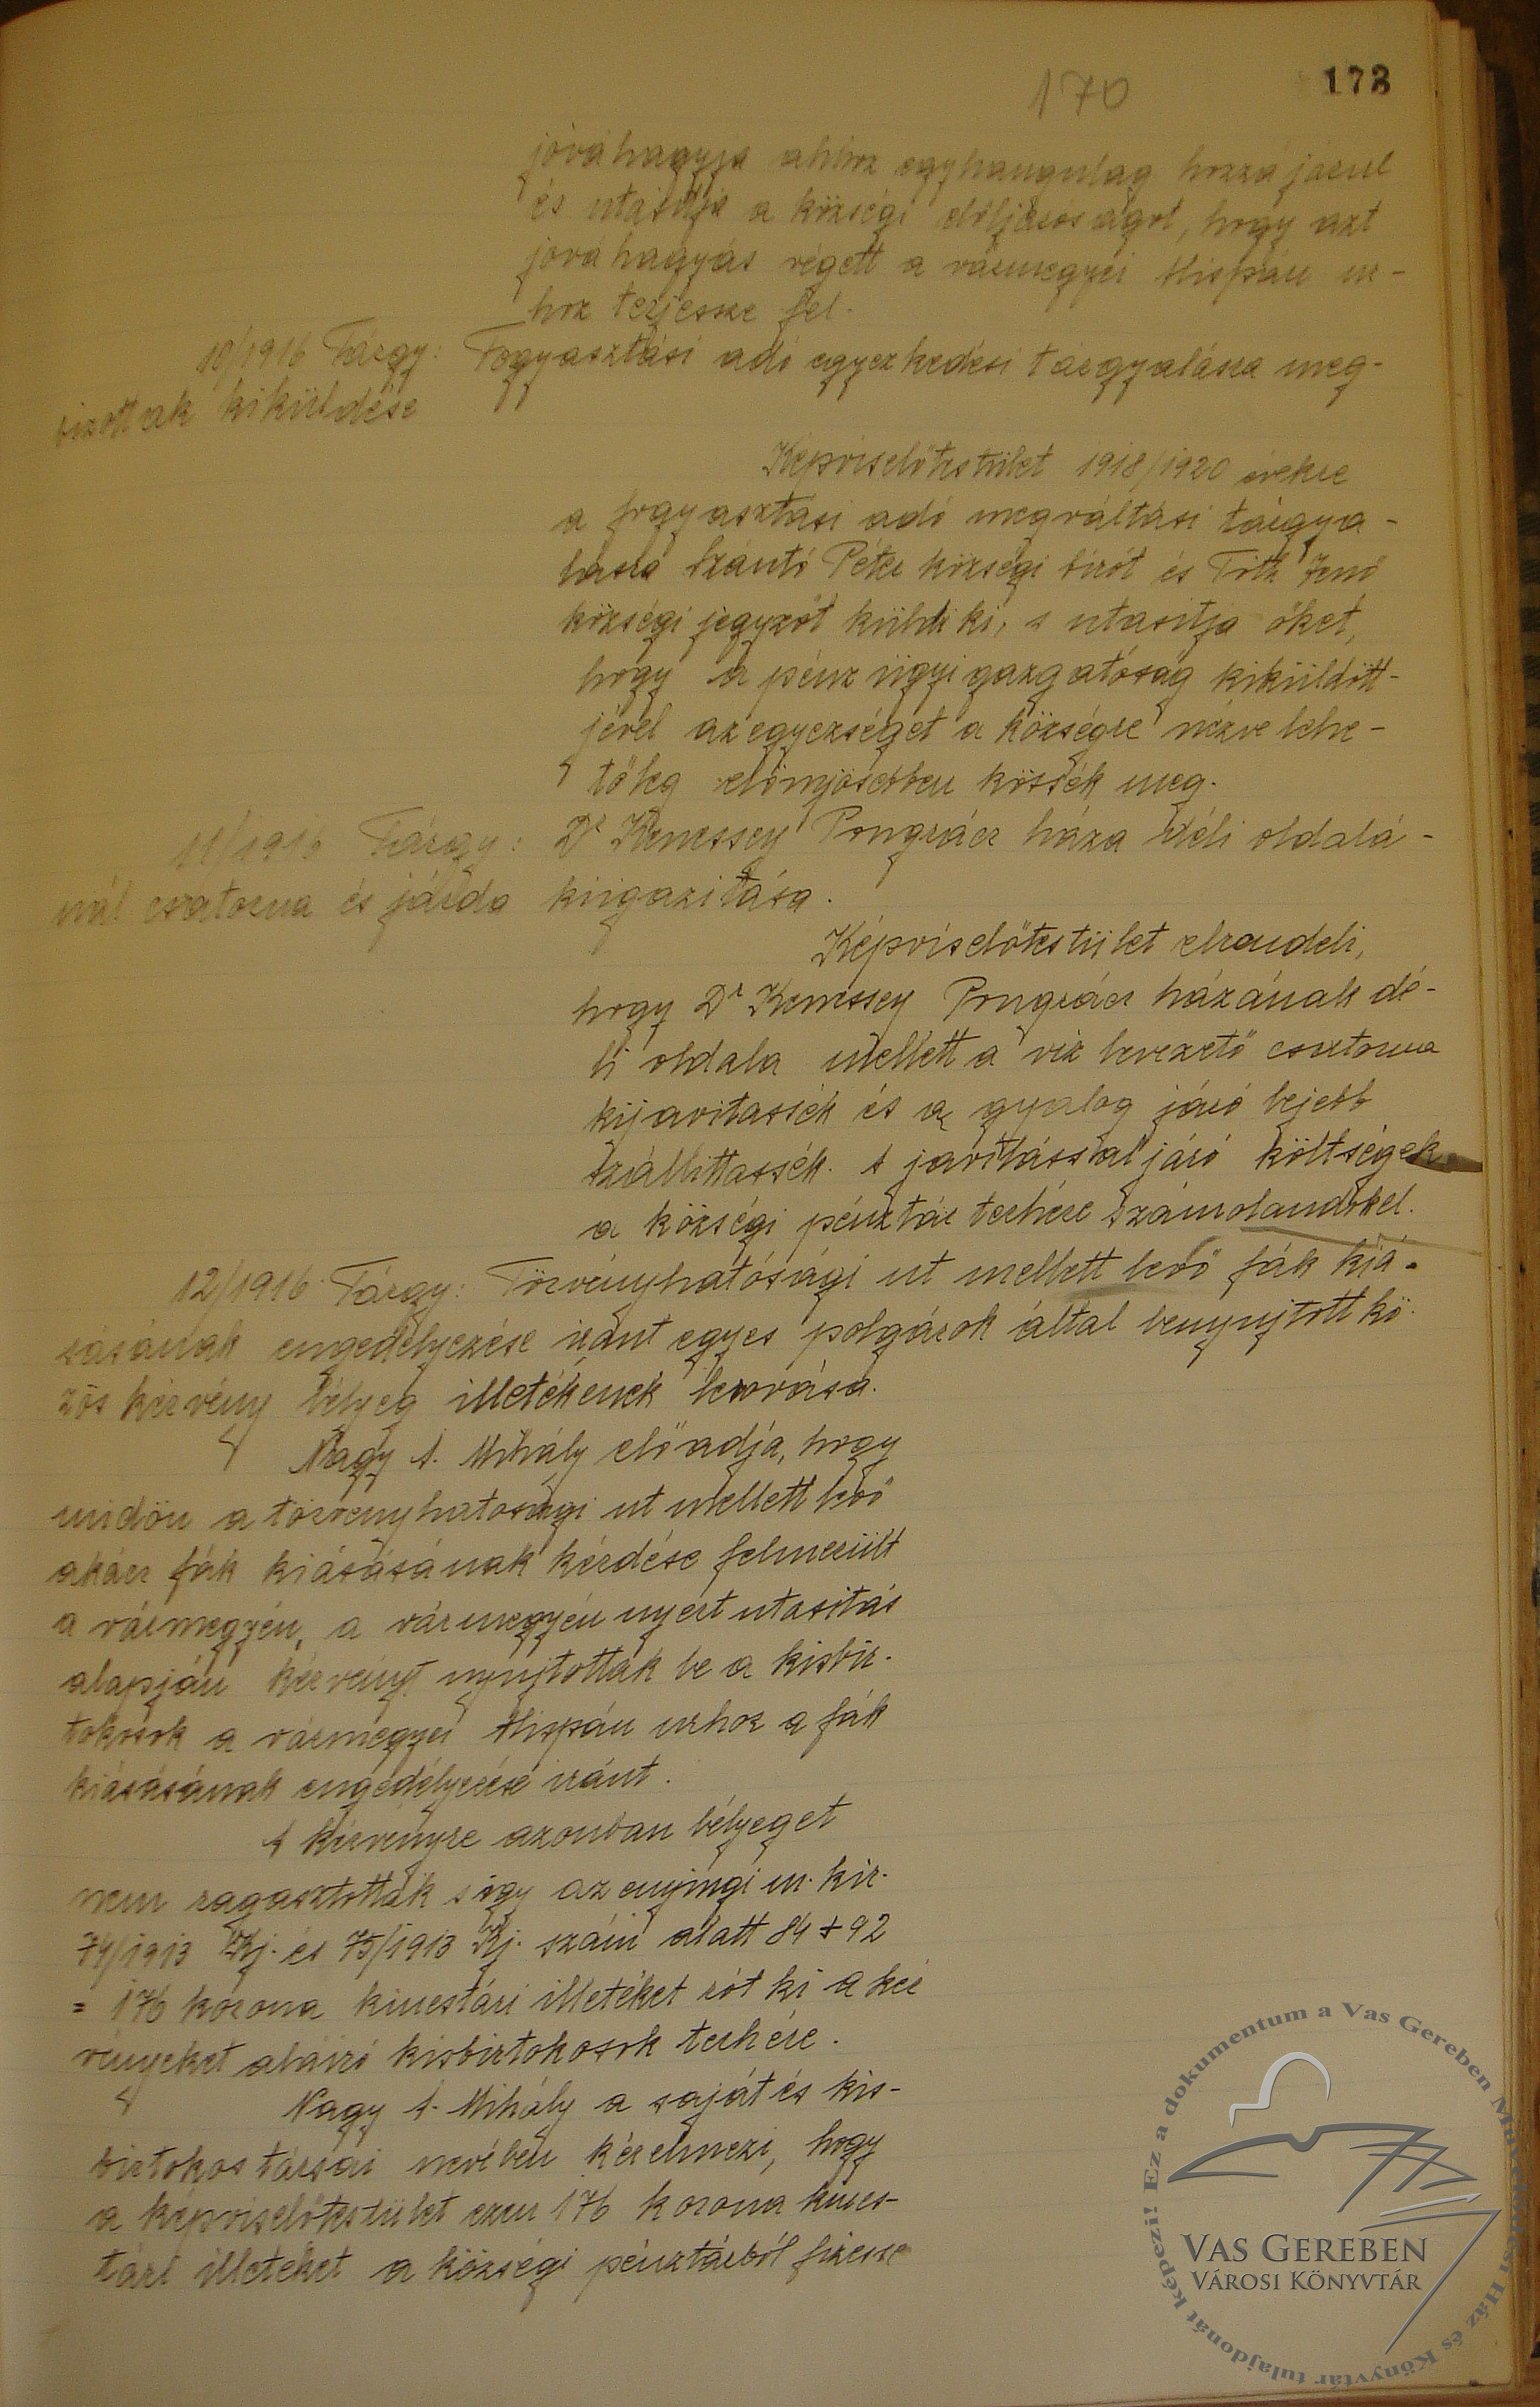 170
173
jóváhagyja ahhoz egyhangulag hozzájárul
és utasitja a községi előljáróságot, hogy azt
jóváhagyás végett a vármegyei Alispán ur-
hoz terjessze fel.
10/1916 Tárgy: Fogyasztási adó egyezkedési tárgyalásra meg-
bizottak kiküldése
Képviselőtestület 1918/1920 évekre
a fogyasztasi adó megváltási tárgya-
lásra Szántó Péter községi birót és Tóth Jenő
községi jegyzőt küldi ki, s utasitja őket,
hogy a pénzügyigazgatóság kiküldött-
jével az egyezséget a községre nézve lehe-
tőleg előnyösebben kössék meg.
11/1916 Tárgy: Dr Kenessey Pongrácz háza déli oldalá-
nál csatorna és járda kiigazitása.
Képviselőtestület elrendeli,
hogy Dr Kenessey Pongrácz házának dé-
li oldala mellett a viz levezető csatorna
kijavitassék és a gyalog járó lejebb
szállittassék. A javitással járó költségek
a községi pénztár terhére számolandók el.
12/1916 Tárgy: Törvényhatósági ut mellett levő fák kiá-
sásának engedélyezése iránt egyes polgárok által benyujtott kö-
zös kérvény bélyeg illetékenek lerovása.
Nagy A. Mihály előadja, hogy
midőn a törvenyhatosági ut mellett levő
akácz fák kiásásának kérdése felmerült
a vármegyén, a vármegyén nyert utasitás
alapján kérvényt nyujtottak be a kisbir-
tokosok a vármegyei Alispán urhoz a fák
kiásásának engedélyezése iránt.
A kérvényre azonban bélyeget
nem ragasztottak s igy az enyingi m. kir.
74/1913 Kj. és 75/1913 Kj. szám alatt 84 + 92
= 176 korona kincstári illetéket rót ki a kér
vényeket aláiró kisbirtokosok terhére.
Nagy A. Mihály a saját és kis-
birtokos társai nevében kérelmezi, hogy
a képviselőtestület ezen 176 korona kincs-
tári illetéket a községi pénztárból fizesse
Ez a dokumentum a Vas Gereben Művelődési Ház és Könyvtár tulajdonát képezi!
VAS GEREBEN
VÁROSI KÖNYVTÁR